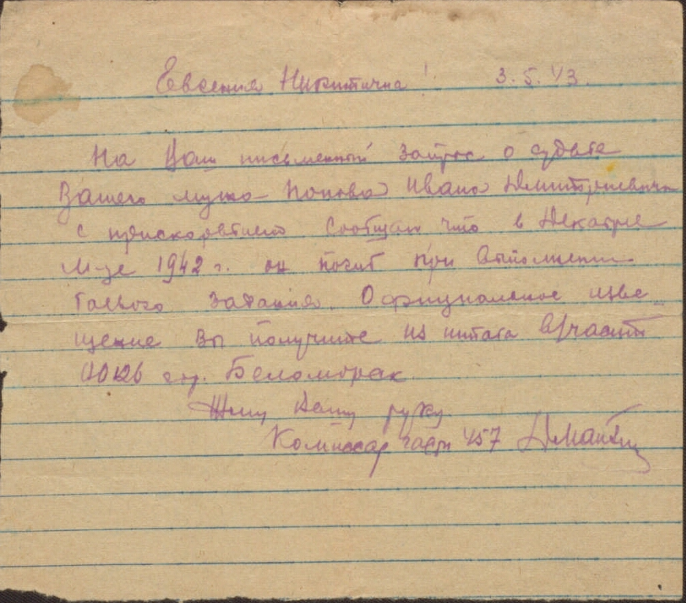 Евгения Никитична! 3.5.43.
На Ваш письменный запрос о судьбе
Вашего мужа Попова Ивана Дмитриевича
с прискорбием сообщаю что в Декабре
м-це 1942 г. он погиб при выполнении
боевого задания. Официальное изве-
щение Вы получите из штата в/части
гор. Беломорск
Жму Вашу руку
Комиссар части 457